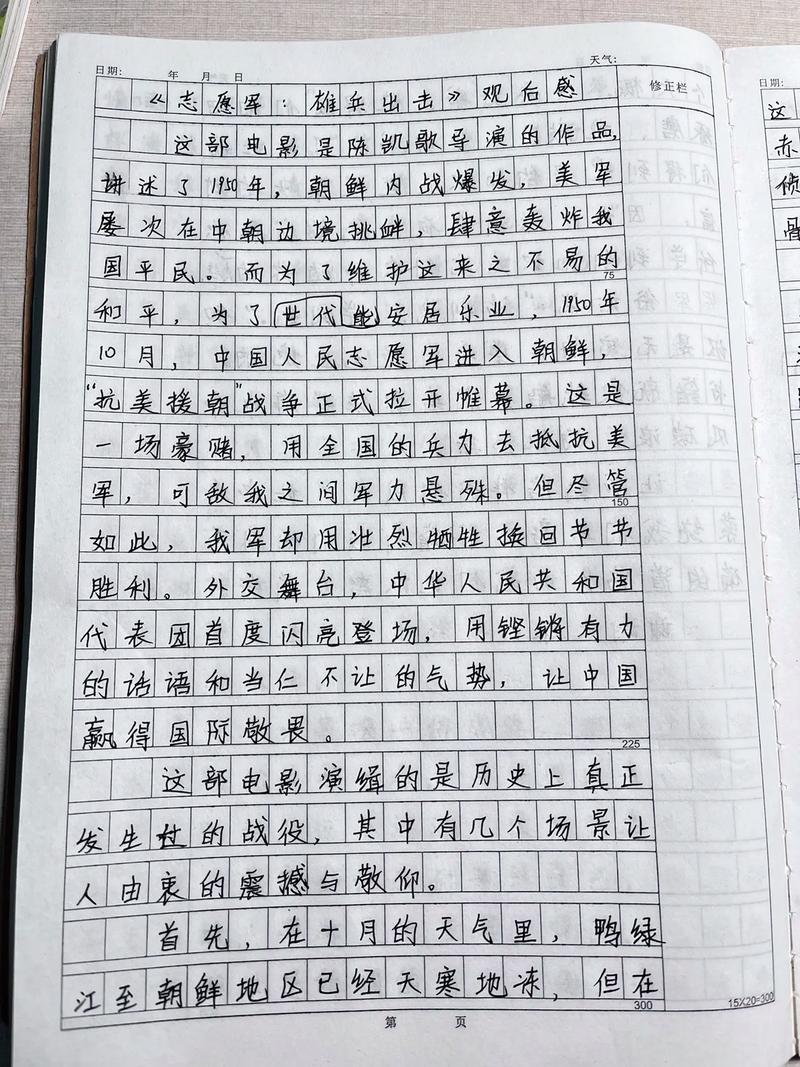 日期: 年 月 日 天气:
《志愿军：雄兵出击》观后感
修正栏
这部电影是陈凯歌导演的作品，
讲述了1950年，朝鲜内战爆发，美军
屡次在中朝边境挑衅，肆意轰炸我
国平民。而为了维护这来之不易的
75
和平，为了世代能安居乐业，1950年
10月，中国人民志愿军进入朝鲜，
“抗美援朝”战争正式拉开帷幕。这是
一场豪赌，用全国的兵力去抵抗美
军，可敌我之间军力悬殊。但尽管
150
如此，我军却用壮烈牺牲换回节节
胜利。外交舞台，中华人民共和国
代表团首度闪亮登场，用铿锵有力
的话语和当仁不让的气势，让中国
赢得国际敬畏。
225
这部电影演缉的是历史上真正
发生过的战役，其中有几个场景让
人由衷的震撼与敬仰。
首先，在十月的天气里，鸭绿
江至朝鲜地区已经天寒地冻，但在
300
15X20=300
第 页
日期:
这
赤
侦